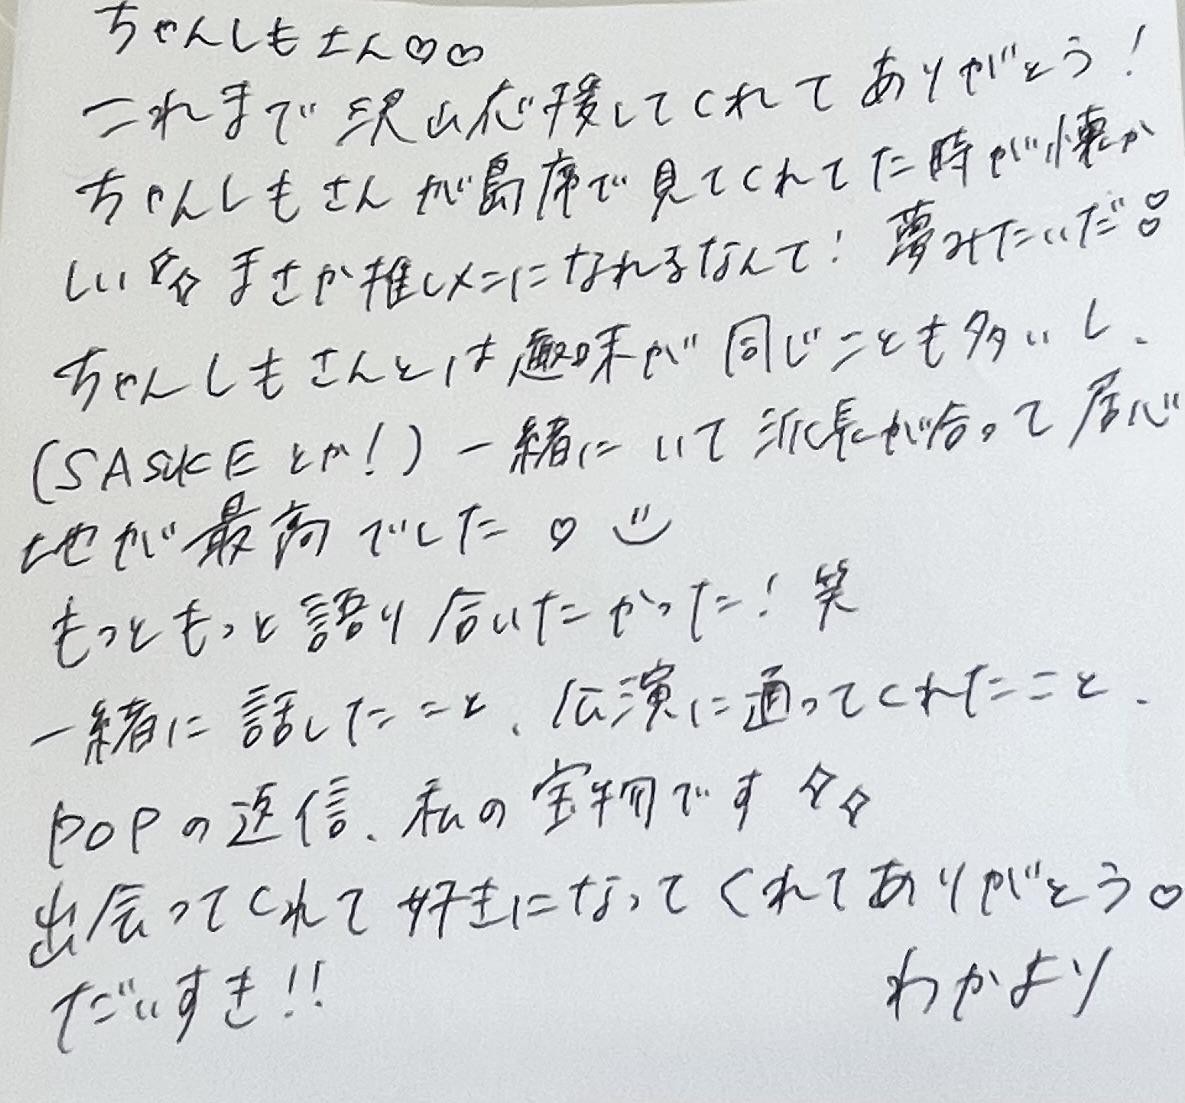 ちゃんしもさん♡♡
これまで沢山応援してくれてありがとう！
ちゃんしもさんが島席で見てくれてた時が懐か
しい✧✧ まさか推しメンになれるなんて！夢みたいだ♡♡
ちゃんしもさんとは趣味が同じことも多いし、
(SASUKEとか！) 一緒にいて波長が合って居心
地が最高でした♡
もっともっと語り合いたかった！笑
一緒に話したこと、公演に通ってくれたこと、
POPの返信、私の宝物です✧✧
出会ってくれて好きになってくれてありがとう♡
だいすき!!　わかより